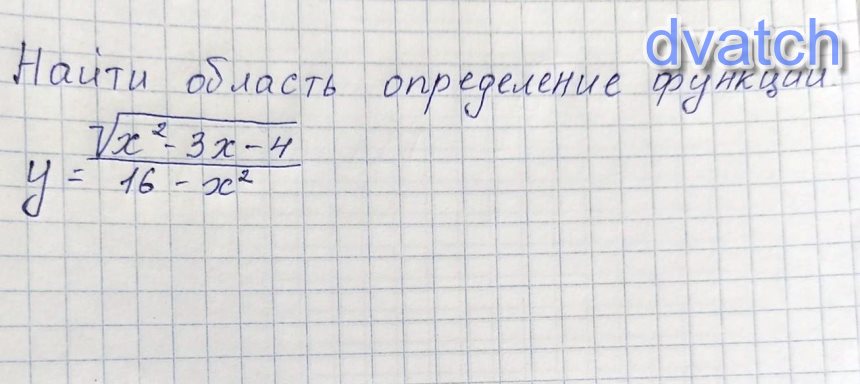 dvatch
Найти область определение функции.
y = √(x² - 3x - 4) / (16 - x²)